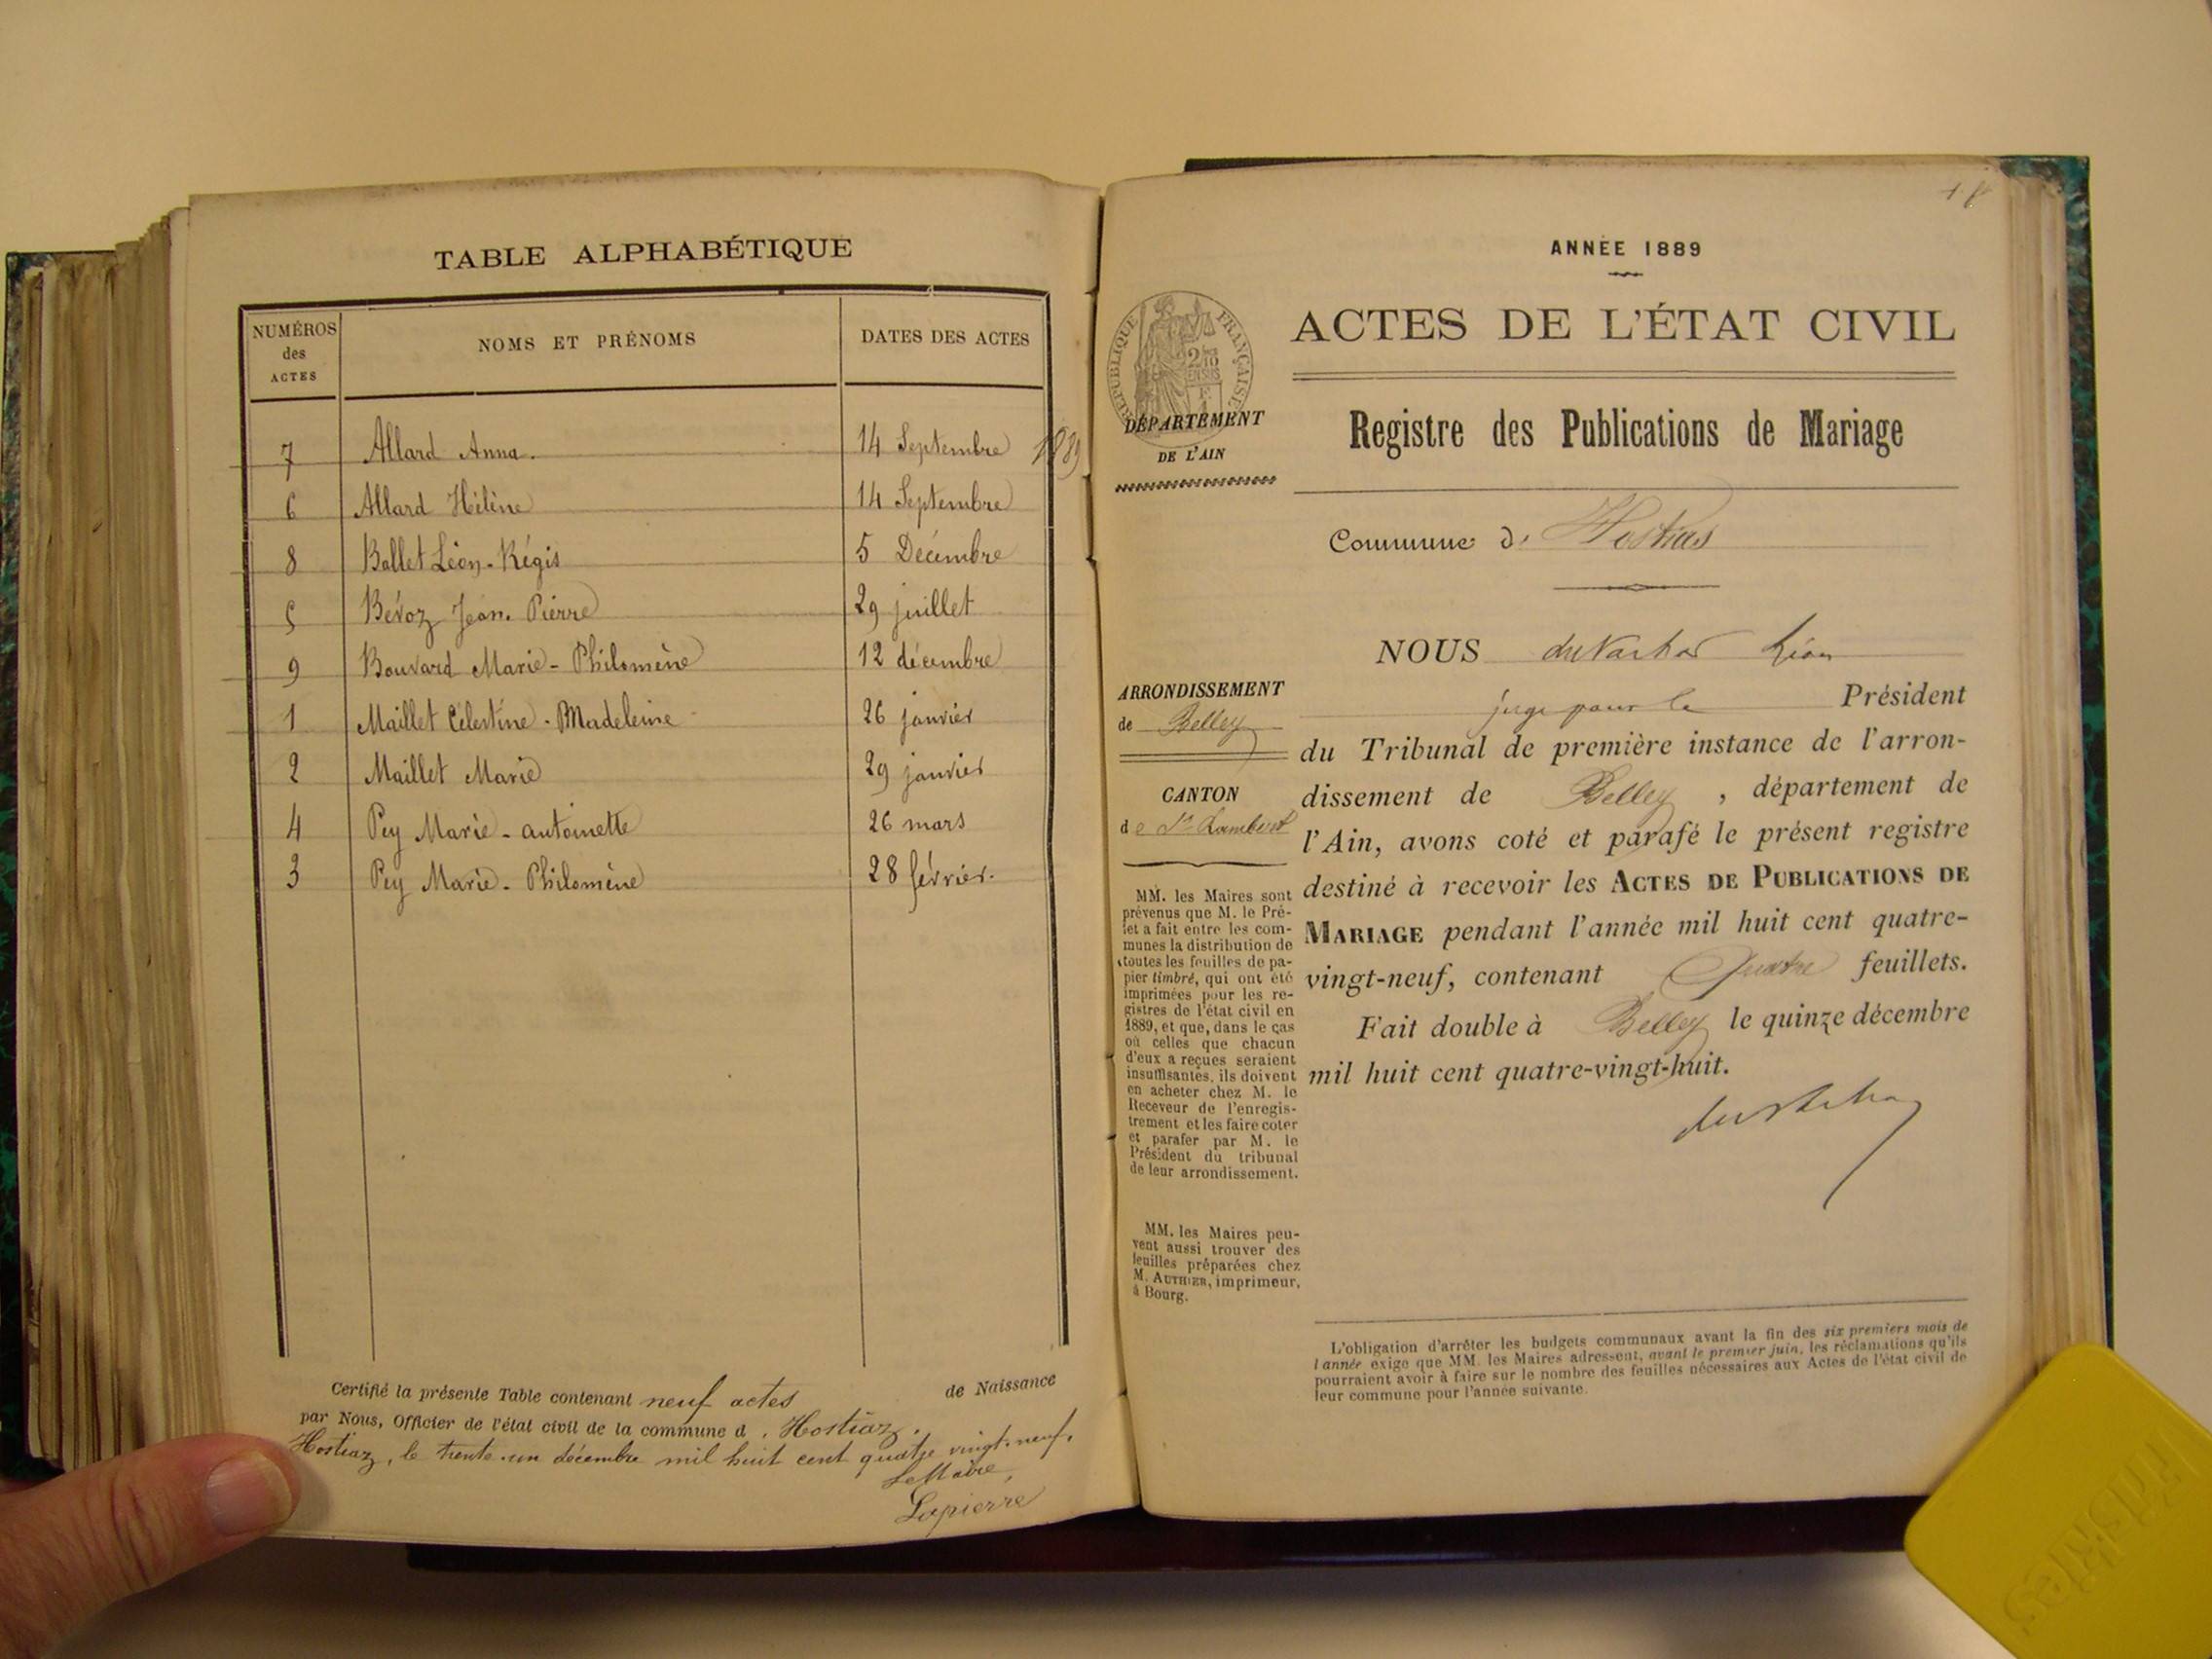 TABLE ALPHABÉTIQUE
NUMÉROS des ACTES NOMS ET PRÉNOMS DATES DES ACTES
7 Allard Anna. 14 Septembre 1889
6 Allard Hélène 14 Septembre
8 Ballet Léon-Régis 5 Décembre
5 Bévoz Jean-Pierre 29 juillet
9 Bouvard Marie-Philomène 12 décembre
1 Maillet Célestine-Madeleine 26 janvier
2 Maillet Marie 29 janvier
4 Pey Marie-antoinette 26 mars
3 Pey Marie-Philomène 28 février.
Certifié la présente Table contenant neuf actes de Naissance
par Nous, Officier de l'état civil de la commune d'Hostiaz.
Hostiaz, le trente-un décembre mil huit cent quatre vingt-neuf.
Le Maire,
Lapierre
ANNÉE 1889
ACTES DE L'ÉTAT CIVIL
RÉPUBLIQUE FRANÇAISE
DÉPARTEMENT
DE L'AIN
Registre des Publications de Mariage
Commune d' Hostias
NOUS Léon
juge pour le Président
du Tribunal de première instance de l'arron-
dissement de Belley, département de
l'Ain, avons coté et parafé le présent registre
destiné à recevoir les ACTES DE PUBLICATIONS DE
MARIAGE pendant l'année mil huit cent quatre-
vingt-neuf, contenant Quatre feuillets.
Fait double à Belley le quinze décembre
mil huit cent quatre-vingt-huit.
ARRONDISSEMENT
de Belley
CANTON
de St Rambert
MM. les Maires sont
prévenus que M. le Pré-
fet a fait entre les com-
munes la distribution de
toutes les feuilles de pa-
pier timbré, qui ont été
imprimées pour les re-
gistres de l'état civil en
1889, et que, dans le cas
où celles que chacun
d'eux a reçues seraient
insuffisantes, ils doivent
en acheter chez M. le
Receveur de l'enregis-
trement et les faire coter
et parafer par M. le
Président du tribunal
de leur arrondissement.
MM. les Maires peu-
vent aussi trouver des
feuilles préparées chez
M. AUTHIER, imprimeur,
à Bourg.
L'obligation d'arrêter les budgets communaux avant la fin des six premiers mois de
l'année exige que MM. les Maires adressent, avant le premier juin, les réclamations qu'ils
pourraient avoir à faire sur le nombre des feuilles nécessaires aux Actes de l'état civil de
leur commune pour l'année suivante.
Fiskars